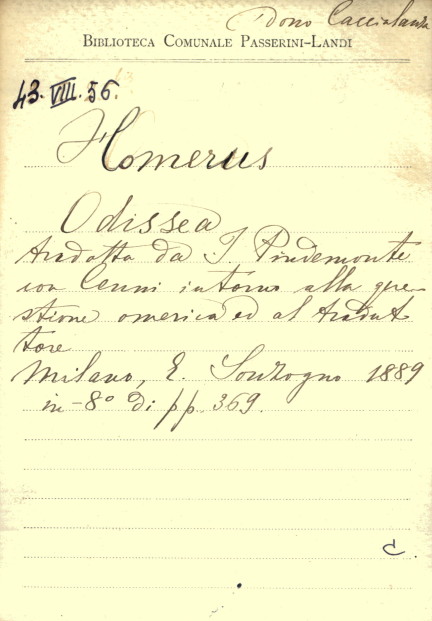 Dono Caccialanza
BIBLIOTECA COMUNALE PASSERINI-LANDI
43. VIII. 56.
Homerus
Odissea
tradotta da I. Pindemonte
con Cenni intorno alla que-
stione omerica ed al tradut
tore
Milano, E. Sonzogno 1889
in-8° di pp. 369.
C.